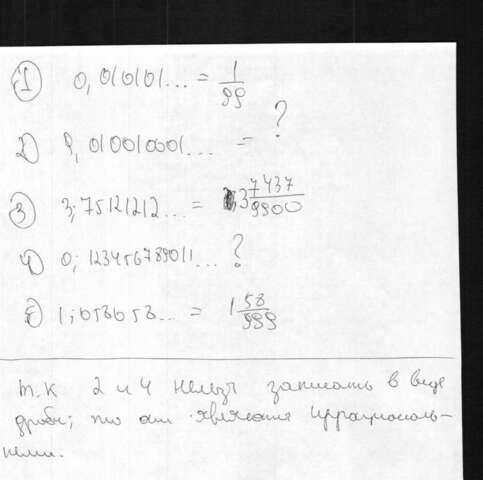 1) 0,010101... = 1/99
2) 0,010010001... = ?
3) 3,75121212... = 3 7437/9900
4) 0,1234567891011... ?
5) 1,058058... = 1 58/999
т.к 2 и 4 нельзя записать в виде
дроби, то они являются иррациональ-
ными.